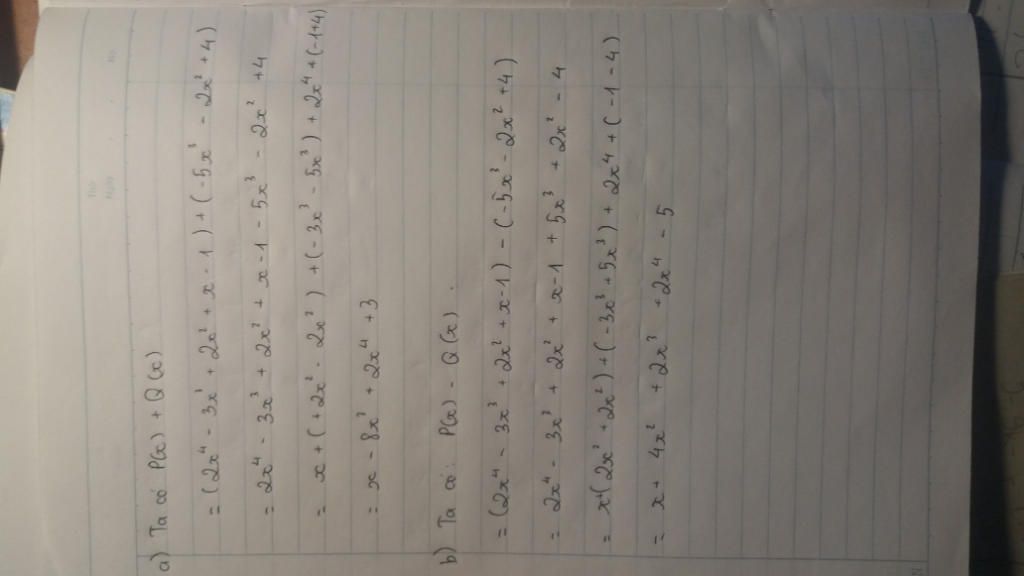 a) Ta có P(x) + Q(x)
= (2x⁴ - 3x³ + 2x² + x - 1) + (-5x³ - 2x² + 4)
= 2x⁴ - 3x³ + 2x² + x - 1 - 5x³ - 2x² + 4
= x + (+2x² - 2x²) + (-3x³ - 5x³) + 2x⁴ + (-1+4)
= x - 8x³ + 2x⁴ + 3
b) Ta có: P(x) - Q(x).
= (2x⁴ - 3x³ + 2x² + x - 1) - (-5x³ - 2x² + 4)
= 2x⁴ - 3x³ + 2x² + x - 1 + 5x³ + 2x² - 4
= x + (2x² + 2x²) + (-3x³ + 5x³) + 2x⁴ + (-1 - 4)
= x + 4x² + 2x³ + 2x⁴ - 5